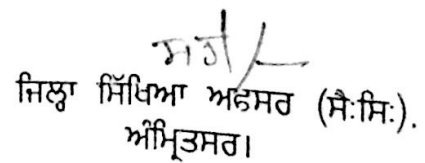 ਸਹੀ/-
ਜਿਲ੍ਹਾ ਸਿੱਖਿਆ ਅਫਸਰ (ਸੈ:ਸਿ:).
ਅੰਮ੍ਰਿਤਸਰ।